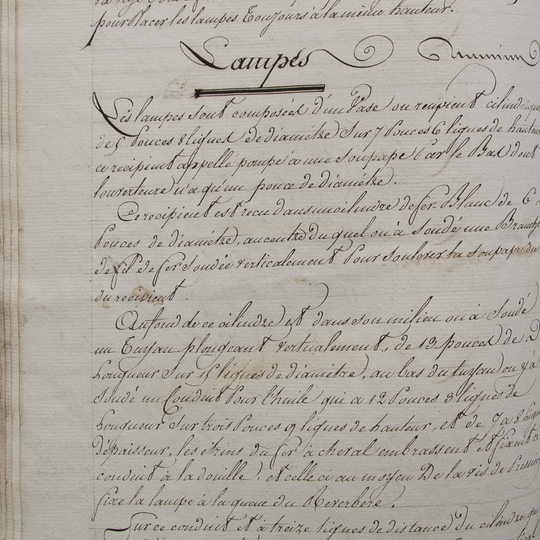 pour placer les lampes Toujours à la même hauteur.
Lampes
Les lampes sont composées d'un Vase ou recipient cilindrique
de 5 Pouces 8 lignes de diamétre Sur 7 Pouces 6 lignes de hauteur
ce recipient appellé pompe a une soupape Par le Bas dont
l'ouverture n'a qu'un pouce de diamétre.
Ce recipient est recu dans un cilindre de fer Blanc de 6
Pouces de diamétre, au centre du quel on à Soudé une Branche
de fil de fer Soudée verticalement Pour Soulever la soupape du
du recipient.
Au fond de ce cilindre est dans son milieu on à Soudé
un Tuyau plongeant verticalement, de 13 pouces de
Longueur Sur lignes de diamétre, au bas du tuyau on y à
Soudé un Conduit Pour l'huile qui a 12 Pouces 3 lignes de
Longueur Sur trois Pouces 9 lignes de hauteur, et de 7 a 8 lignes
d'épaisseur, les étriers du fer à cheval embrassent et fixent
conduit à la douille, et celle ci au moyen De la vis de Pression
fixe la lampe à la queue du Reverbére.
Sur ce conduit et à treize lignes de distance du cilindre